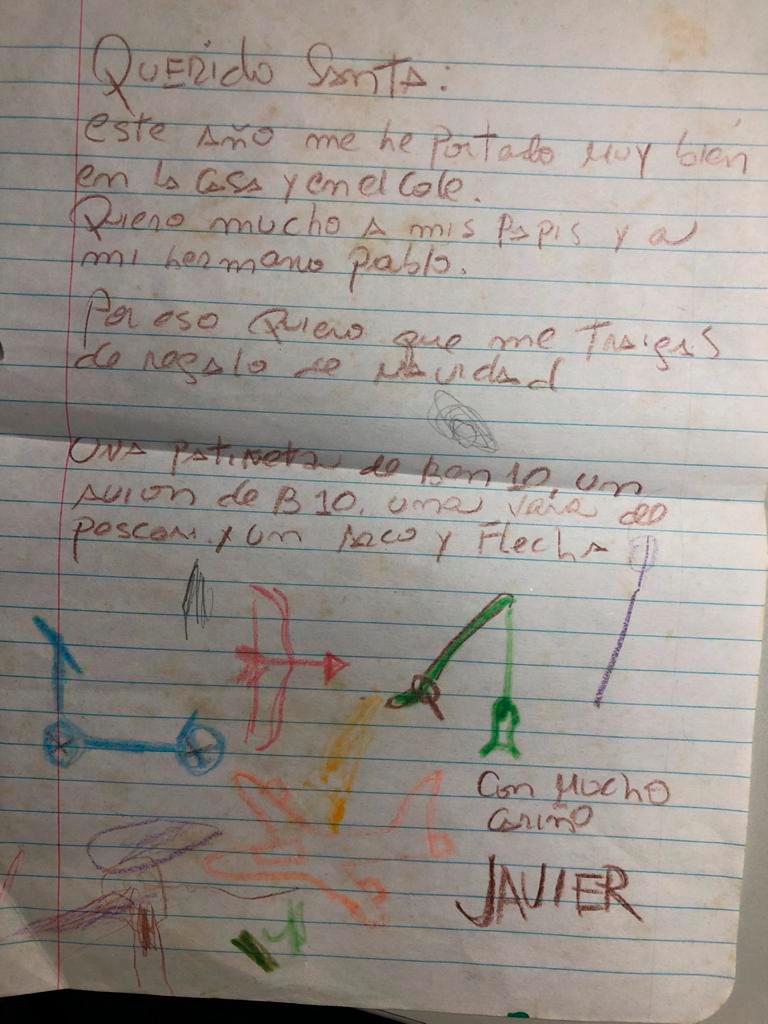 Querido Santa:
este año me he portado muy bien
en la casa y en el cole.
Quiero mucho a mis papis y a
mi hermano pablo.
Por eso quiero que me traigas
de regalo de navidad
una patineta de Ben 10, un
avion de B 10, una vara de
pescar. y un Arco y Flecha
Con mucho
cariño
JAVIER